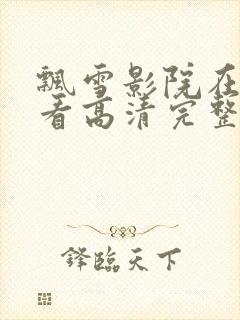 飘雪影院在
看高清完整
锋临天下